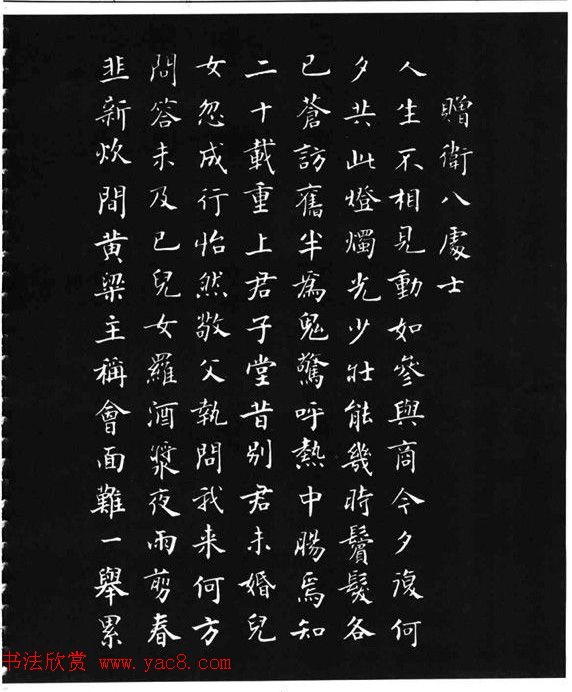 贈衛八處士
人生不相見動如參與商今夕復何
夕共此燈燭光少壯能幾時鬢髮各
已蒼訪舊半為鬼驚呼熱中腸焉知
二十載重上君子堂昔別君未婚兒
女忽成行怡然敬父執問我来何方
問答未及已兒女羅酒漿夜雨剪春
韭新炊間黃粱主稱會面難一舉累
书法欣赏 www.yac8.com